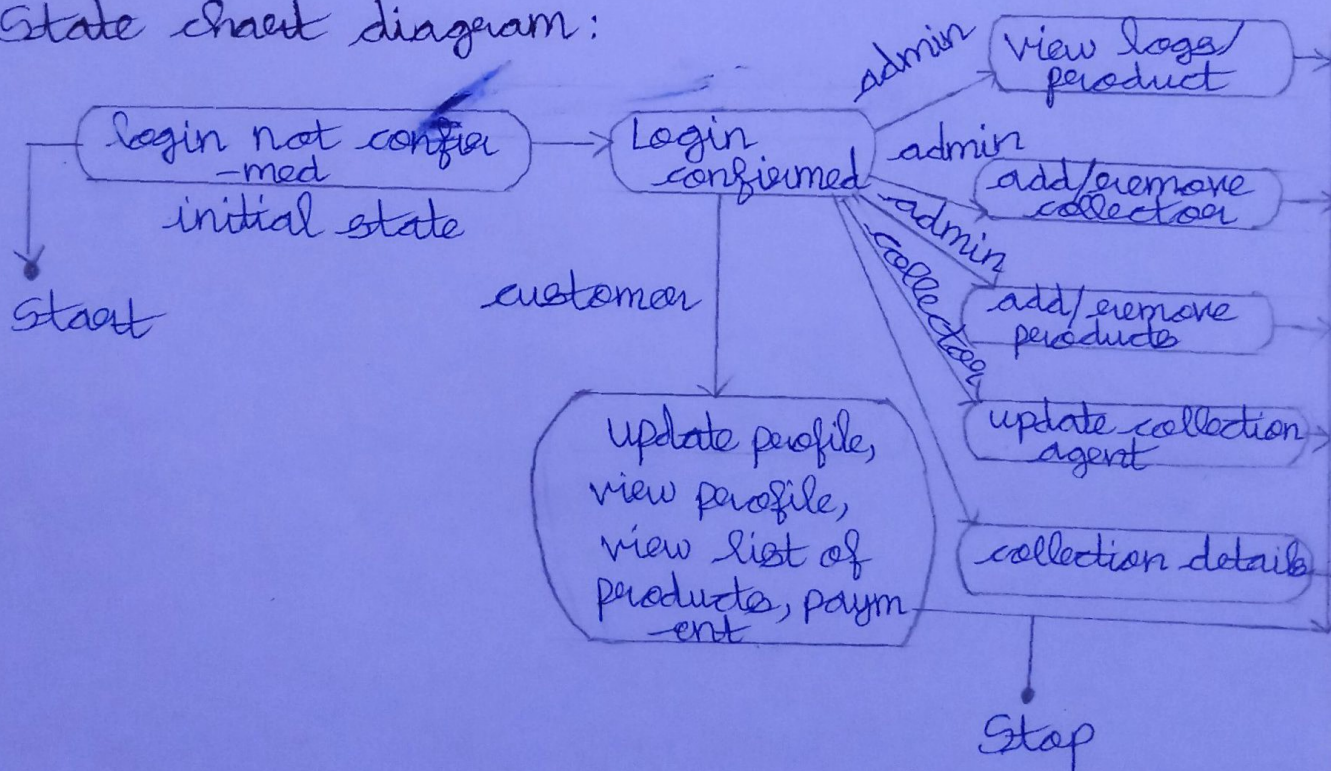 State chart diagram:
login not confir
-med
initial state
Start
Login
confirmed
admin
view logs/
product
admin
add/remove
collector
admin
add/remove
products
collector
update collection
agent
collection details
customer
update profile,
view profile,
view list of
products, paym
-ent
Stop